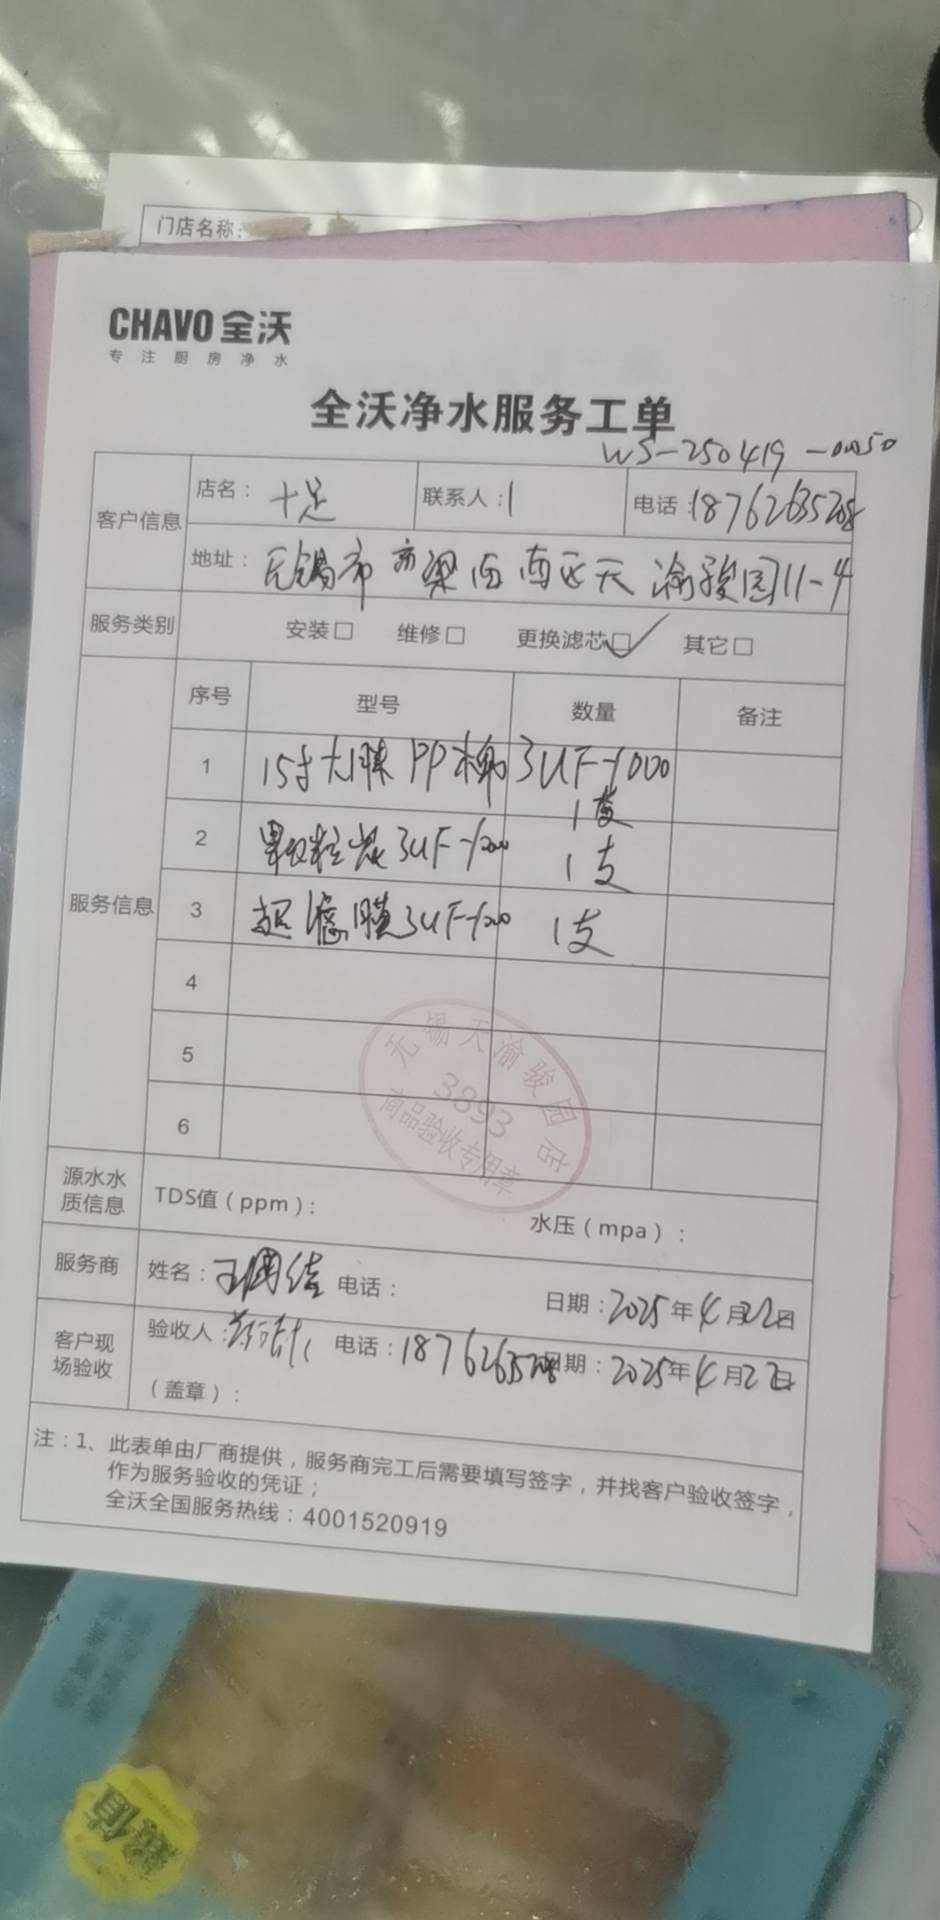 门店名称:
CHAVO 全沃
专注厨房净水
全沃净水服务工单
WS-250419-00050
客户信息 店名： 十足 联系人： 电话：18762635208
地址： 无锡市 梁 天渝骏园11-4
服务类别 安装□ 维修□ 更换滤芯□ 其它□
服务信息 序号 型号 数量 备注
1 15寸大胖PP棉3UF-1000 1支
2 颗粒炭3UF-1000 1支
3 超滤膜3UF-1000 1支
4
5
6
无锡天渝骏园店
3893
商品验收专用章
源水水质信息 TDS值（ppm）： 水压（mpa）：
服务商 姓名：王 电话： 日期：2025年4月22日
客户现场验收 验收人： 电话：18762635208 日期：2025年4月22日
（盖章）：
注：1、此表单由厂商提供，服务商完工后需要填写签字，并找客户验收签字，
作为服务验收的凭证；
全沃全国服务热线：4001520919